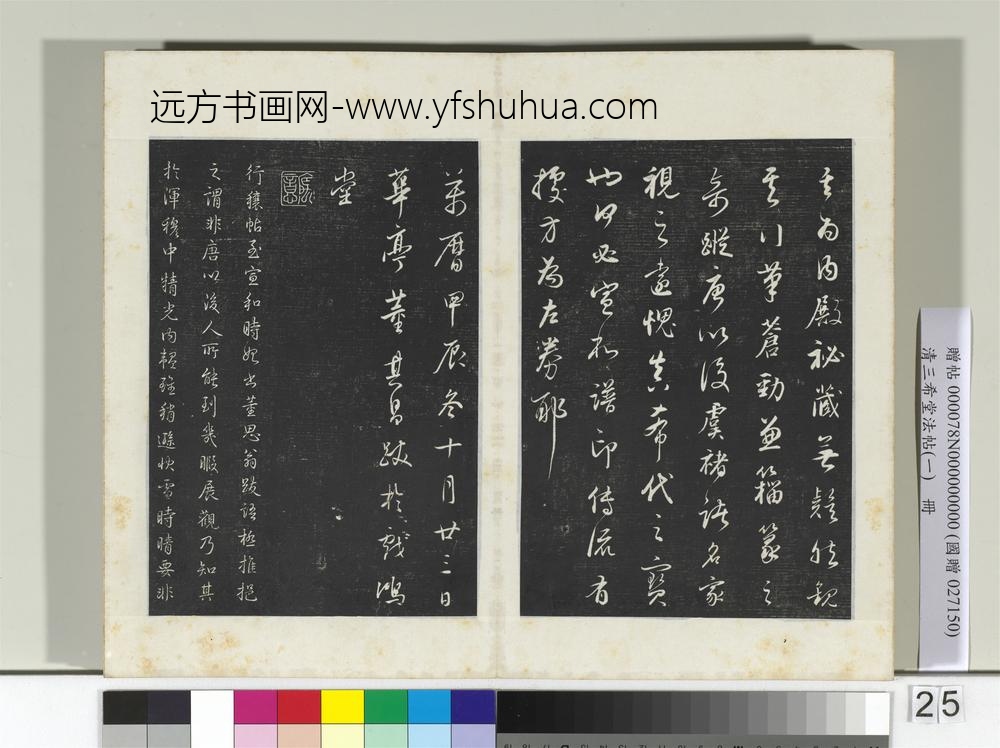 远方书画网-www.yfshuhua.com
其为内殿秘藏無疑然觀
其行筆蒼勁兼籀篆之
奇蹤唐以後虞褚諸名家
視之遠愧真希代之寶
也何必宣和譜印傳流有
據方為左劵耶
萬曆甲辰冬十月廿三日
華亭董其昌跋於戲鴻
堂
行穰帖至宣和時始出董思翁跋語極推挹
之謂非唐以後人所能到幾暇展觀乃知其
於渾穆中精光内韞雖稍遜快雪時晴要非
贈帖 000078N000000000 (國贈 027150)
清三希堂法帖(一) 冊
25